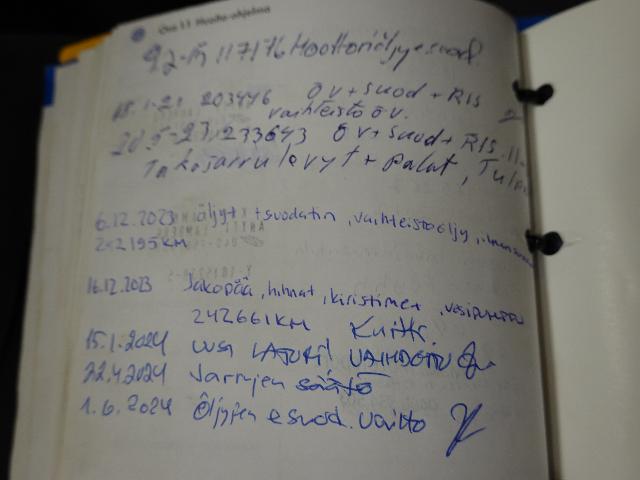 Osa 11 Huolto-ohjelma
117176 Moottoriöljy + suod.
18.1-21 203446 ÖV + SUOD + RIS
vaihteisto ÖV.
20.5-23, 233643 ÖV + SUOD + RIS.
Takajarru levyt + palat, Tulp
6.12.2023 öljyt + suodatin, vaihteistoöljy,
242195 KM
16.12.2023 Jakopää, hihnat, kiristimet, vesipumppu
242661 KM Kuitti.
15.1.2024 UUSI LATURI VAIHDETTU
22.4.2024 Jarrujen säätö
1.6.2024 Öljyjen & suod. vaihto